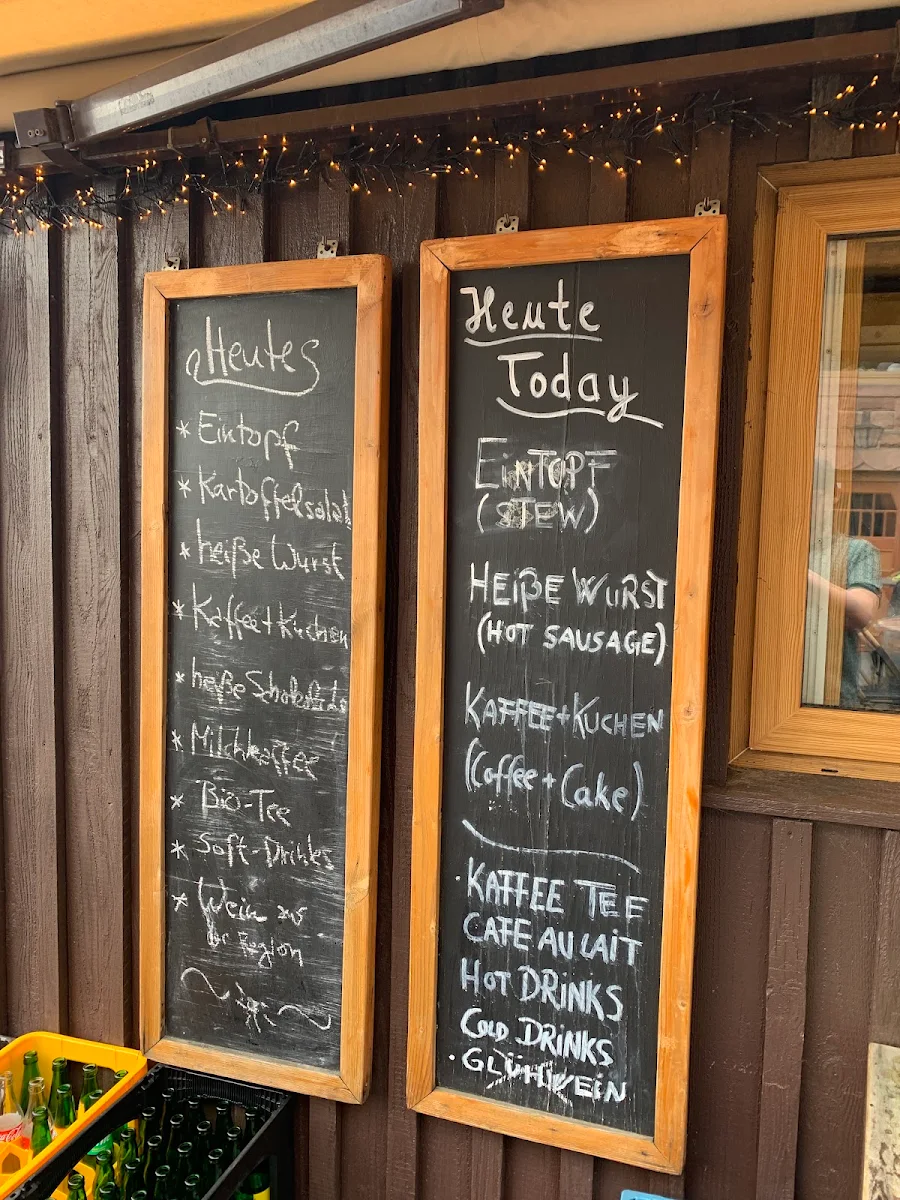 Heutes
* Eintopf
* Kartoffelsalat
* heiße Wurst
* Kaffee+Kuchen
* heiße Schokolade
* Milchkaffee
* Bio-Tee
* Soft-Drinks
* Wein aus
der Region
Heute
Today
EINTOPF
(STEW)
HEIßE WURST
(HOT SAUSAGE)
KAFFEE+KUCHEN
(Coffee + Cake)
· KAFFEE TEE
CAFE AU LAIT
HOT DRINKS
COLD DRINKS
· GLÜHWEIN